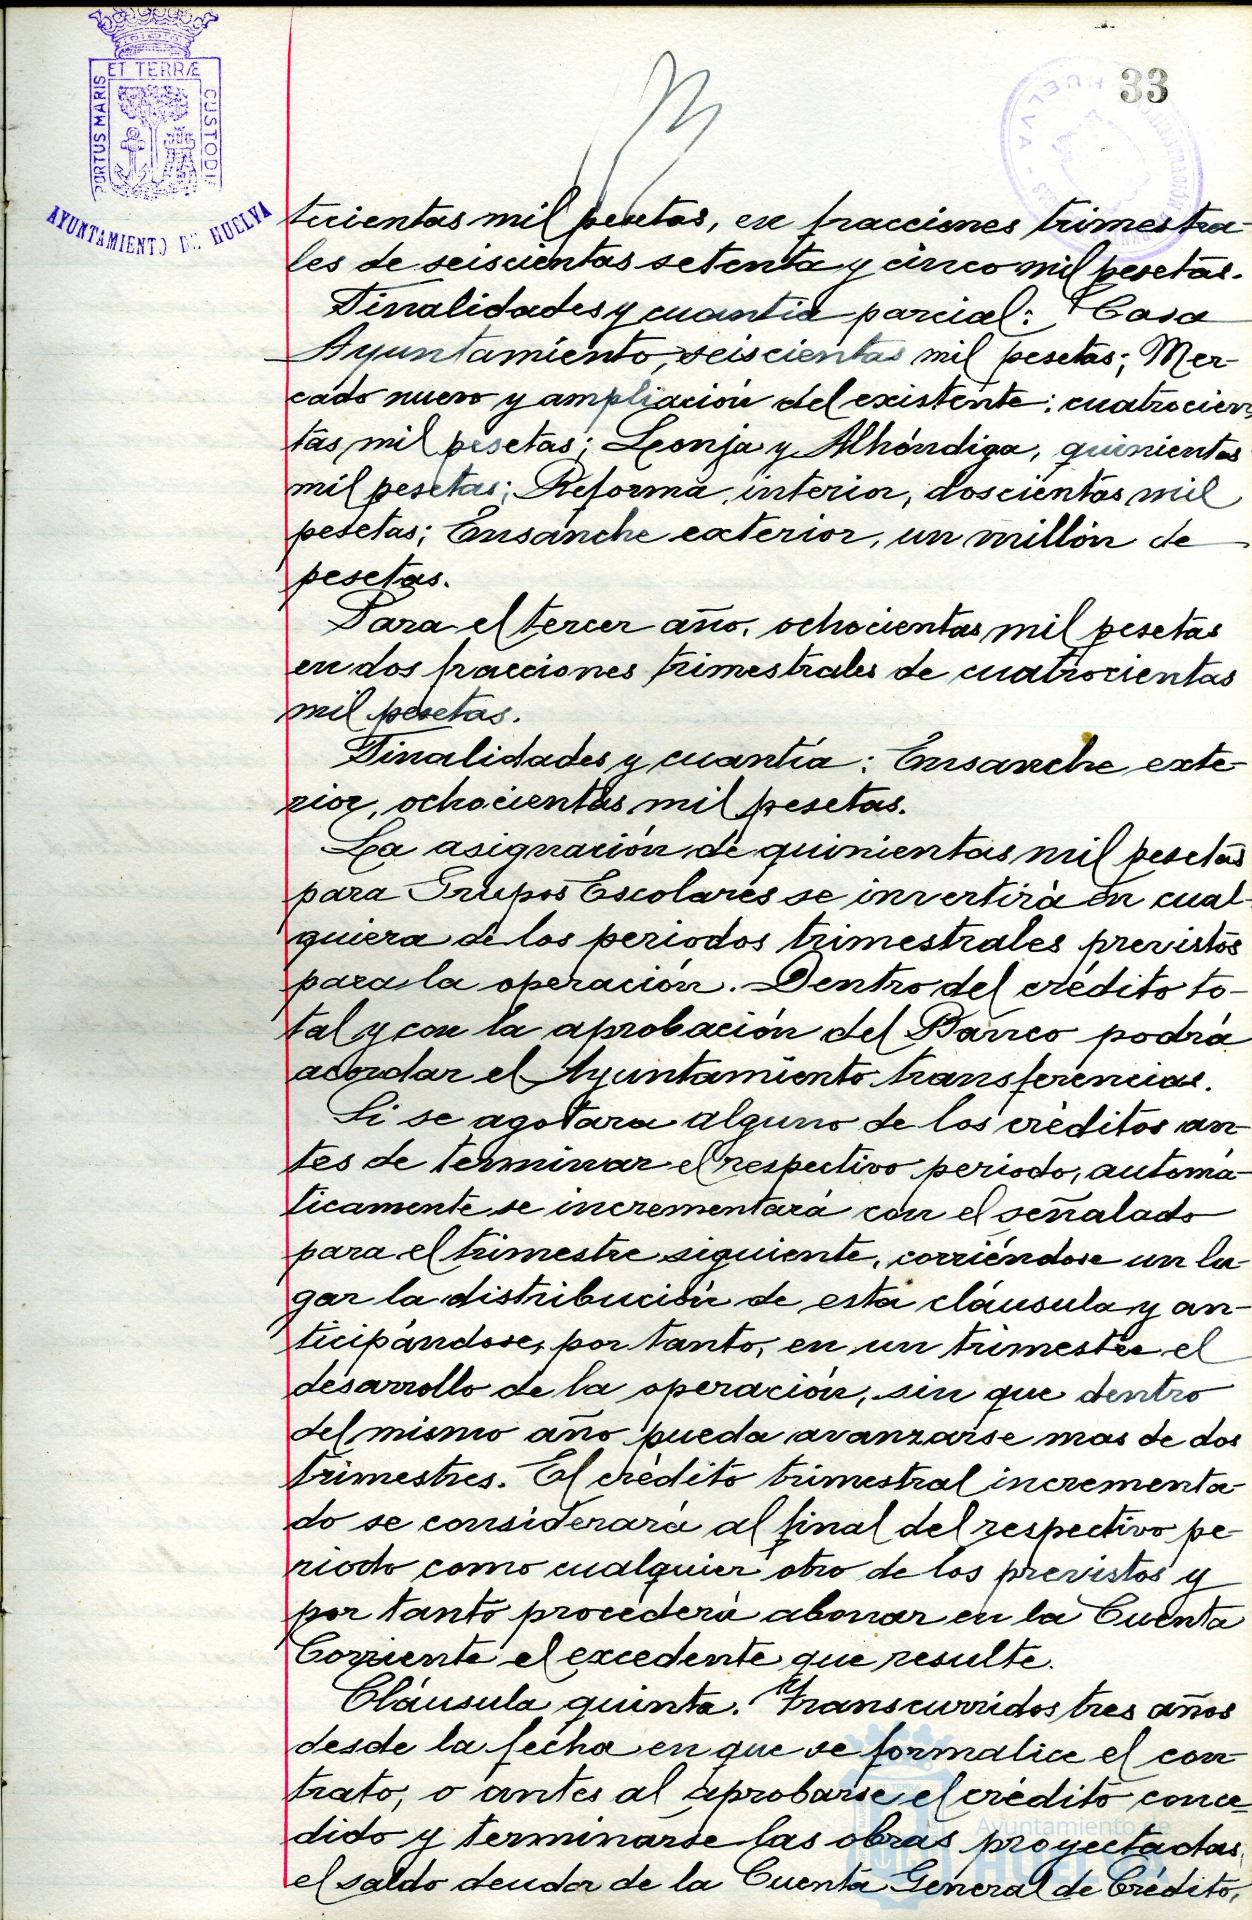 ET TERRÆ
PORTUS MARIS
CUSTODI
AYUNTAMIENTO DE HUELVA
33
HUELVA
tecientas mil pesetas, en fracciones trimestra-
les de seiscientas setenta y cinco mil pesetas.
Finalidades y cuantia parcial: Casa
Ayuntamiento, seiscientas mil pesetas; Mer-
cado nuevo y ampliación del existente: cuatrocien
tas mil pesetas; Lonja y Alhóndiga, quinientas
mil pesetas; Reforma interior, doscientas mil
pesetas; Ensanche exterior, un millón de
pesetas.
Para el tercer año, ochocientas mil pesetas
en dos fracciones trimestrales de cuatrocientas
mil pesetas.
Finalidades y cuantía: Ensanche exte-
rior, ochocientas mil pesetas.
La asignación de quinientas mil pesetas
para Grupos Escolares se invertirá en cual-
quiera de los periodos trimestrales previstos
para la operación. Dentro del crédito to-
tal y con la aprobación del Banco podrá
acordar el Ayuntamiento transferencias.
Si se agotara alguno de los créditos an-
tes de terminar el respectivo periodo, automá-
ticamente se incrementará con el señalado
para el trimestre siguiente, corriéndose un lu-
gar la distribución de esta cláusula y an-
ticipándose, por tanto, en un trimestre el
desarrollo de la operación, sin que dentro
del mismo año pueda avanzarse mas de dos
trimestres. El crédito trimestral incrementa-
do se considerará al final del respectivo pe-
riodo como cualquier otro de los previstos y
por tanto procederá abonar en la Cuenta
Corriente el excedente que resulte.
Cláusula quinta. Transcurridos tres años
desde la fecha en que se formalice el con-
trato, o antes al aprobarse el crédito conce-
dido y terminarse las obras proyectadas,
el saldo deudor de la Cuenta General de Crédito,
Ayuntamiento de
HUELVA